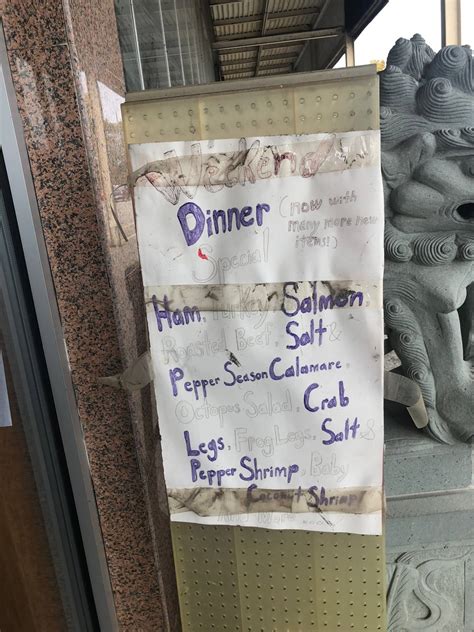 Weekend
Dinner (now with
many more new
items!)
Special
Ham, Turkey, Salmon,
Roasted Beef, Salt &
Pepper Season Calamare,
Octopus Salad, Crab
Legs, Frog Legs, Salt &
Pepper Shrimp, Baby
Coconut Shrimp